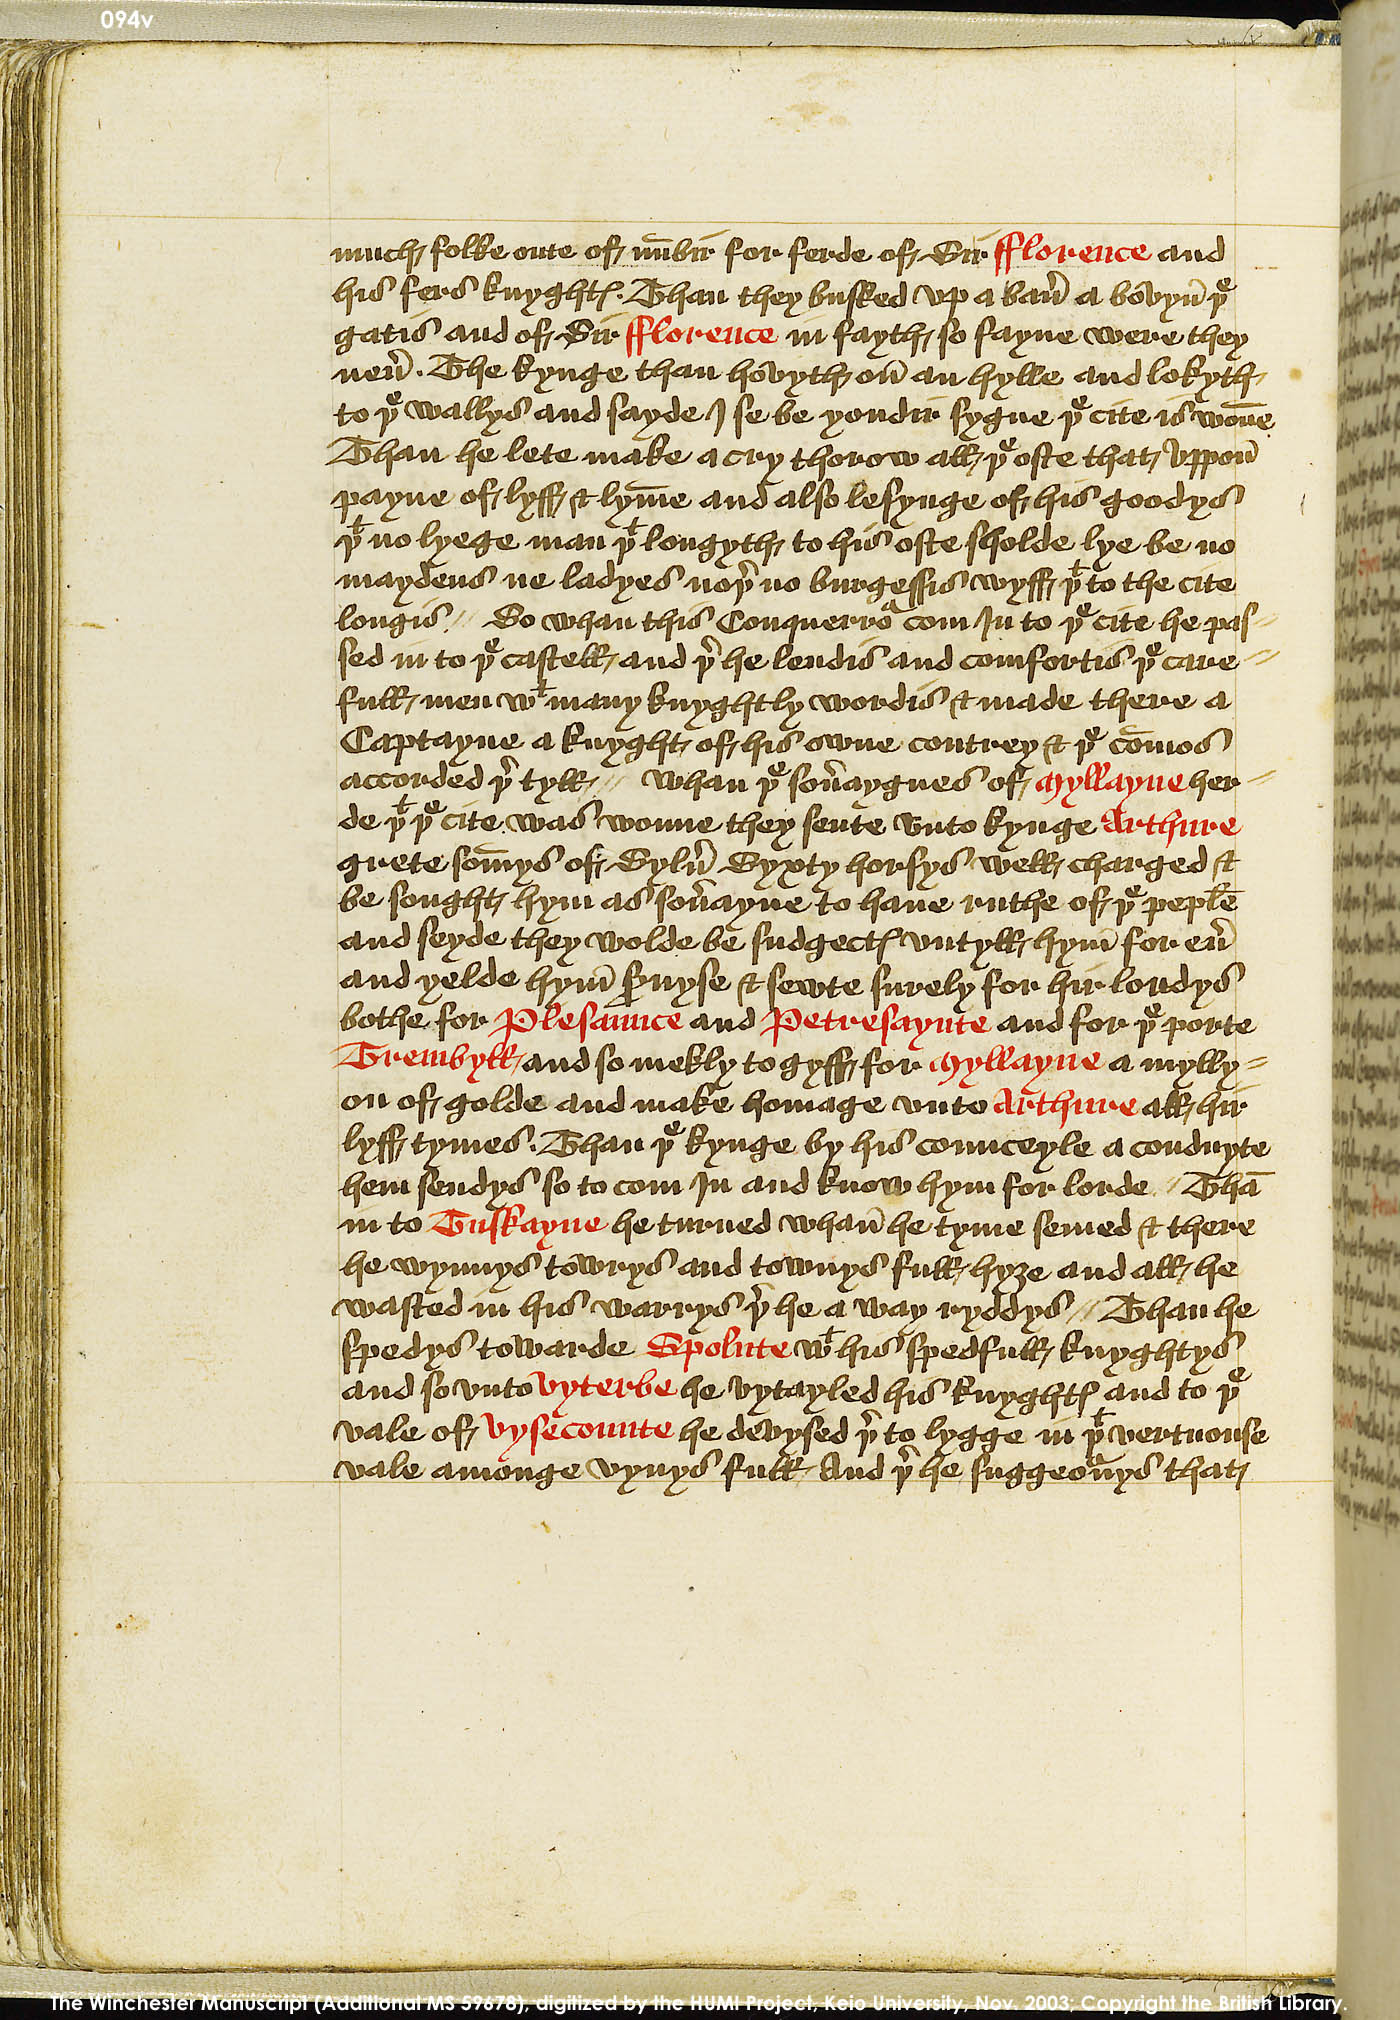 094v
much folke oute of nūbir for ferde of Sir fflorence and
his fers knyghtꝭ. Than they busked vp a baner̄ a bovyn̄ þe
gatis and of Sir fflorence in fayth so fayne were they
neu̾. The kynge than hovyth on̄ an hylle and lokyth
to þe wallys and sayde I se be yondir sygne þe cite is wonē
Than he lete make a cry thorow all þe oste that vppon̄
payne of lyff & lym̄e and also lesynge of his goodys
þt no lyege man þt longyth to his oste sholde lye be no
maydens ne ladyes noþ̾ no burgessis wyff þt to the cite
longis // So whan this Conquerroᵃ com In to þe cite he pas=
sed in to þe castell and þ̾ he lendis and comfortis þe care=
full men wt many knyghtly wordis & made there a
Captayne a knyght of his owne contrey & þe com̄os
accorded þ̾ tyll // whan þe sou̾aygnes of Myllayne her=
de þt þe cite was wonne they sente vnto kynge Arthure
grete som̄ys of Sylu̾ Syxty horsys well charged &
be sought hym as sou̾ayne to haue ruthe of þe peple
and seyde they wolde be sudgectꝭ vntyll hym̄ for eu̾
and yelde hym̄ s̾uyse & sewte surely for hir londys
bothe for Plesaunce and Petresaynte and for þe porte
Trembyll and so mekly to gyff for Myllayne a mylly=
on of golde and make homage vnto Arthure all hir
lyff tymes. Than þe kynge by his counceyle a conduyte
hem sendys so to com In and know hym for lorde // Thā
in to Tuskayne he turned whan̄ he tyme semed & there
he wynnys towrys and townys full hyȝe and all he
wasted in his warrys þ̾ he a way ryddys // Than he
spedys towarde Spolute wt his spedfull knyghtys
and so vnto vyterbe he vytayled his knyghtꝭ and to þe
vale of vysecounte he devysed þ̾ to lygge in þt vertuouse
vale amonge vynys full And þ̾ he suggeoᵃnys that
The Winchester Manuscript (Additional MS 59678), digitized by the HUMI Project, Keio University, Nov. 2003; Copyright the British Library.